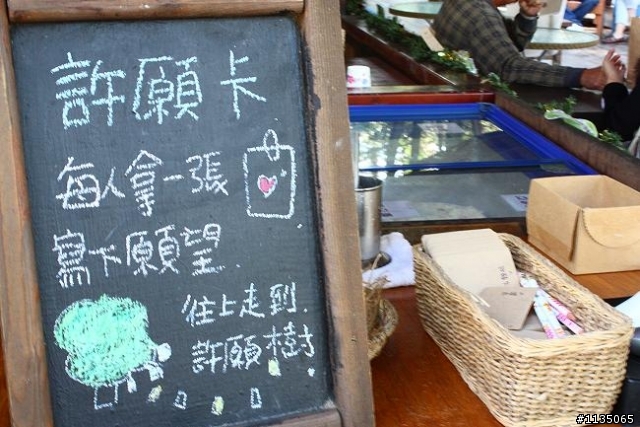 許願卡
每人拿一張
寫下願望.
往上走到.
許願樹.
#1135065